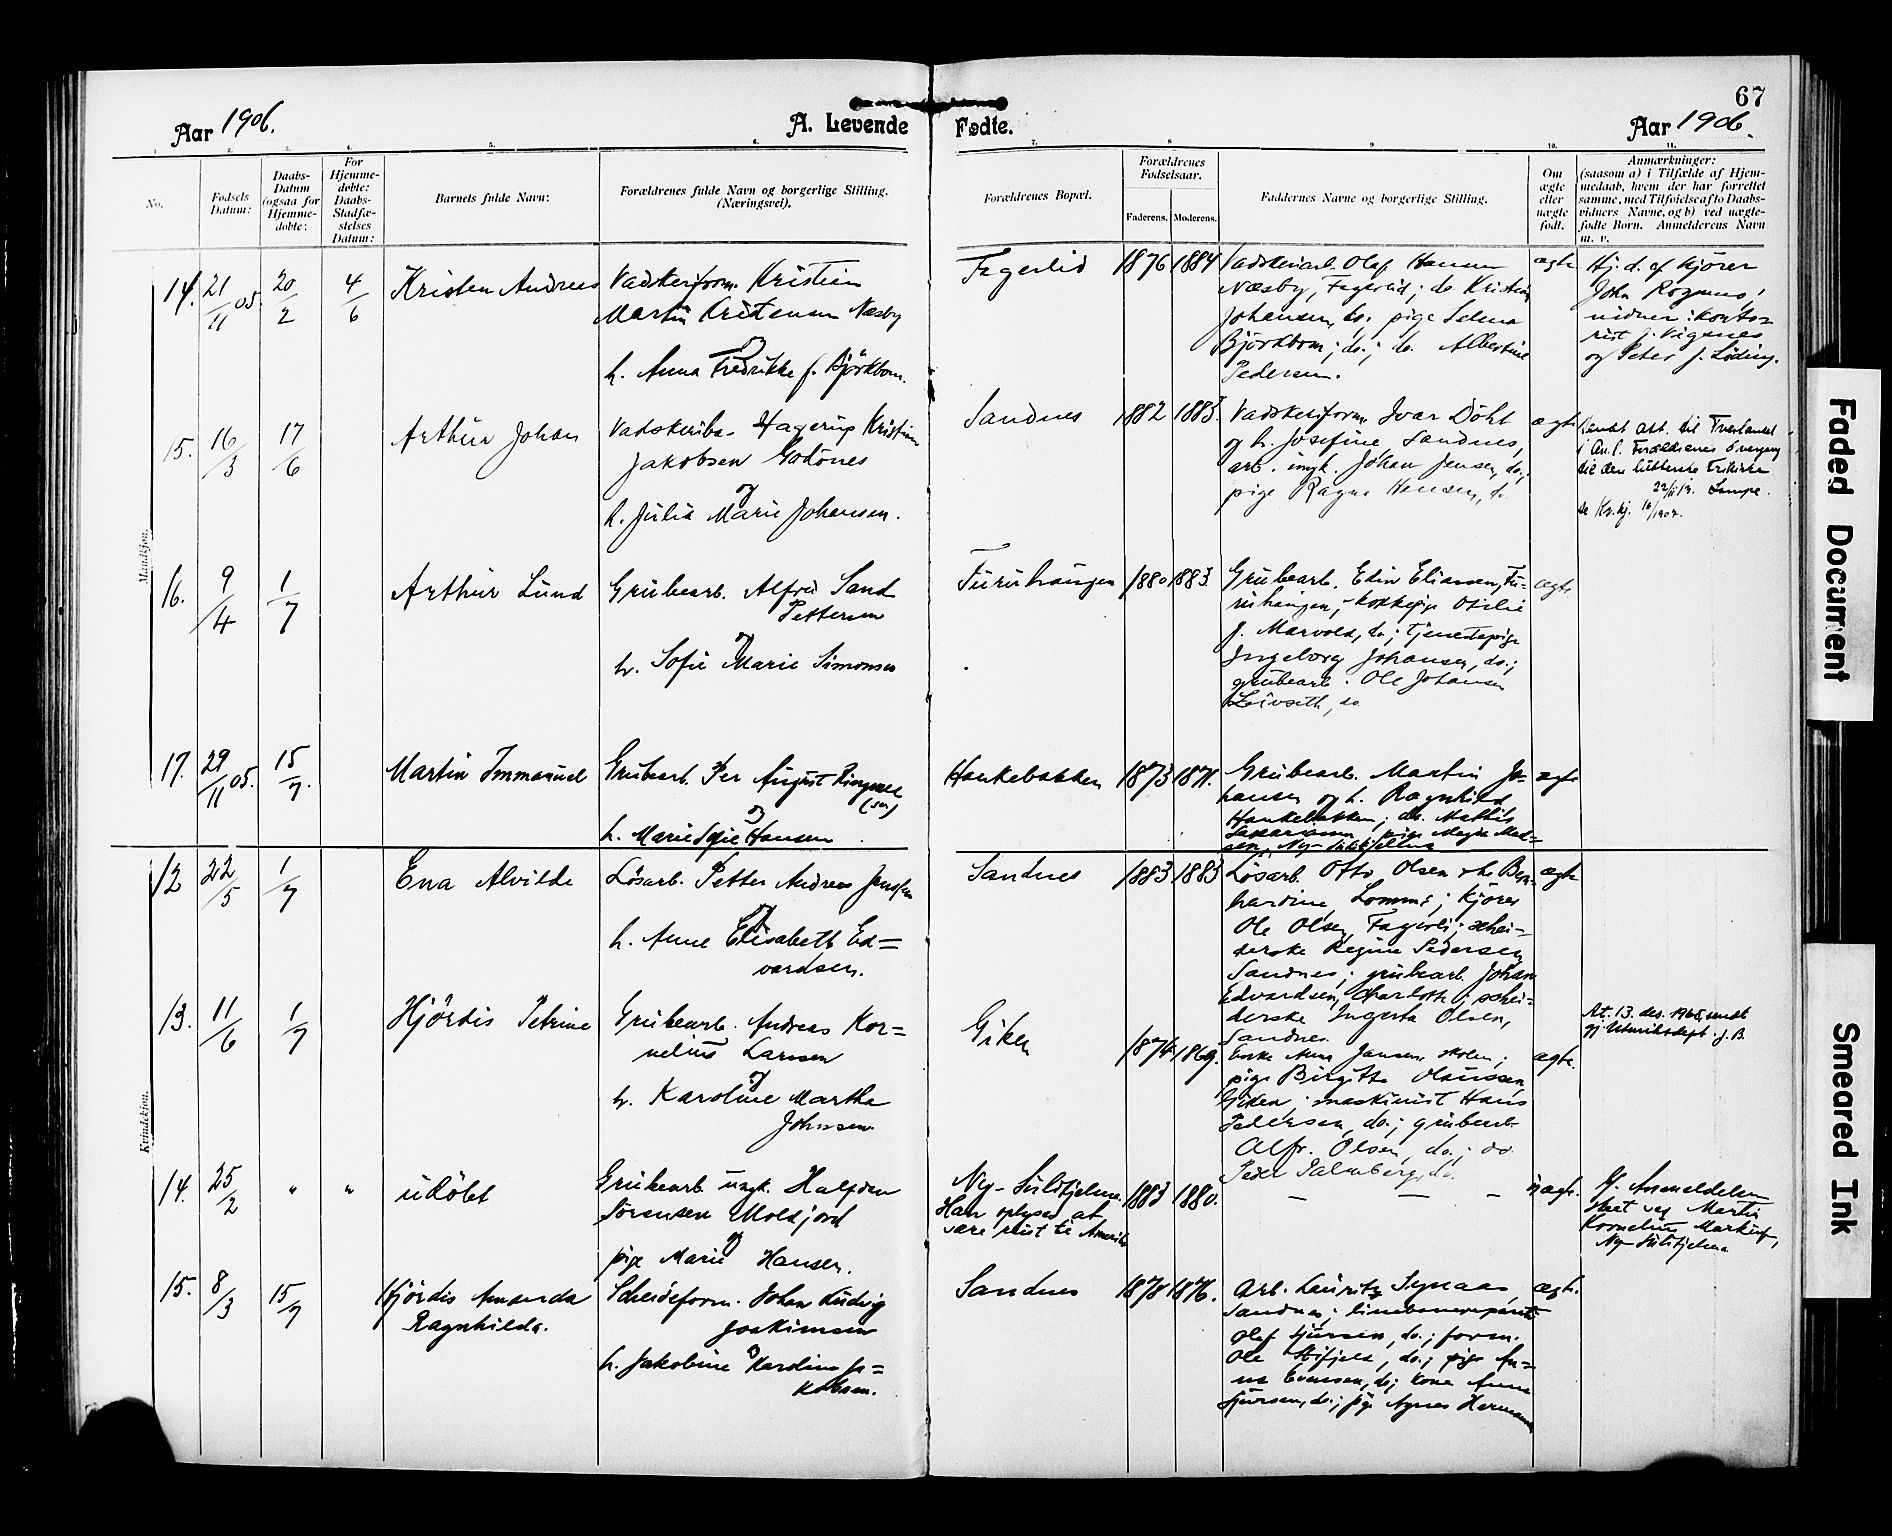 67
Aar 1906.
A. Levende Fødte.
Aar 1906.
1. 2. 3. 4. 5. 6. 7. 8 9 10. 11.
No.
Fødsels Datum:
Daabs-Datum (ogsaa for Hjemme-døbte:
For Hjemme-døbte: Daabs-Stadfæ-stelses Datum:
Barnets fulde Navn:
Forældrenes fulde Navn og borgerlige Stilling. (Næringsvei).
Forældrenes Bopæl.
Forældrenes Fødselsaar.
Faderens. Moderens.
Faddernes Navne og borgerlige Stilling.
Om ægte eller uægte født.
Anmærkninger:
(saasom a) i Tilfælde af Hjem-
medaab, hvem der har forrettet
samme, med Tilføielse af to Daabs-
vidners Navne, og b) ved uægte-
fødte Børn. Anmelderens Navn
m. v.
Mandkjøn.
14. 21/11 05. 20/2 4/6 Kristen Andreas
Vadskeriform. Kristian
Martin Kristensen Næsby
og
h. Anna Fredrikke f. Björkbom.
Fagerlid 1876 1884
Vadskeriarb. Olaf Hansen
Næsby, Fagerlid; do. Kristian
Johansen, do. pige Selma
Björkbom; do.; do. Albertine
Pedersen.
ægte
Hj. d. af kjører
John Rognmo,
vidner: kontorist
og Peter J. Löding.
15. 16/3 17/6 Arthur Johan
Vadskeriba. Hagerup Kristian
Jakobsen Godönes
og
h. Julia Marie Johansen.
Sandnes 1882 1883.
Vadskeriform. Ivar Döht
og h. Josefine Sandnes,
arb. ungk. Johan Jensen, do.,
pige Ragna Hansen, do
ægte
Sendt att. til Tverlandet
i An. l. Forældrenes overgang
til den lutherske Frikirke
16. 9/4 1/7 Arthur Lund
Grubearb. Alfred Sand
Pettersen
og
h. Sofie Marie Simonsen
Furuhaugen 1880 1883.
Grubearb. Edin Eliassen, Fu-
ruhaugen; kokkepige Otilie
J. Marvold, do.; tjenestepige
Ingeborg Johansen, do.;
grubearb. Ole Johansen
Leivseth, do
ægte
17. 29/11 05. 15/7. Martin Immanuel
Grubearb. Per August Ringmar
og
h. Marie Sofie Hansen
Hankebakken 1873 1871.
Grubearb. Martin Jo-
hansen og h. Ragnhild
Hankebakken; do. Mathis
ægte
Kvindekjøn.
12 22/5 1/7 Ena Alvilde
Lösarb. Petter Andreas Jensen
og
h. Anne Elisabeth Ed=
vardsen.
Sandnes 1883 1883
Lösarb. Otto Olsen & h. Bern-
hardine, Lommi; kjörer
Ole Olsen, Fagerli; schei-
derske Regine Pedersen
Sandnes; grubearb. Johan
Edvardsen, Charlotta; schei=
derske Ingerta Olsen,
Sandnes.
ægte
13. 11/6 1/7 Hjördis Petrine
Grubearb. Andreas Kor=
nelius Larsen
og
h. Karoline Martha
Johnsen
Giken 1874 1869.
Enke Jansen, skolen;
pige Birgitte Olaussen,
Giken; maskinist Hans
Pedersen, do.; grubearb.
Alfr. Olsen, do.; do.
Peder Palmberg, do.
ægte.
At. 13. des. 1965 sendt
14. 25/2 " " udöbt
Grubearb. ungk. Halfdan
Sörensen Moldjord
og
pige Marie Hansen.
Ny-Sulitjelma.
Han oplyses at
være reist til Amerika
1883 1880.
— — —
uægte.
Anmeldelsen
skeet ved Martin
Kornelius
Ny-Sulitjelma
15. 8/3 15/7 Hjördis Amanda
Ragnhilda.
Scheideform. Johan Ludvig
Joakimsen
og
h. Jakobine Karoline Ja=
kobsen.
Sandnes 1878 1876.
Arb. Lauritz
Sandnes;
Olaf Sjursen, do.; form.
Ole do.; pige An=
na Evensen, do; kone Anna
Sjursen, do.; pige Agnes Hermansen
ægte.
Faded Document
Smeared Ink